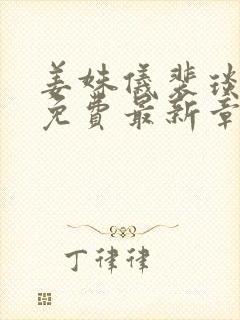 姜姝儀裴琰
免費最新章
丁律律